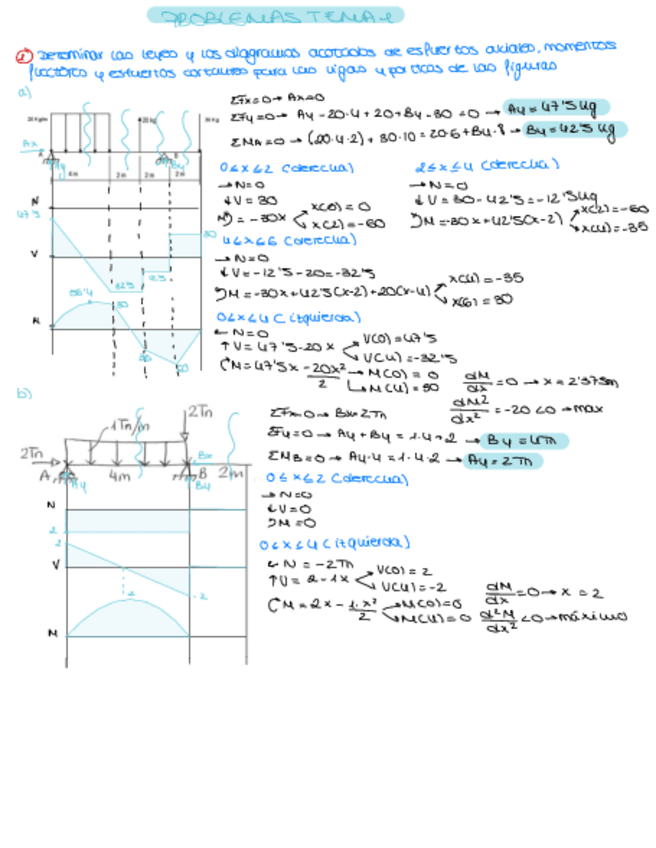 PROBLEMAS TEMA 1
① Determinar las leyes y los diagramas acotados de esfuertos axiales, momentos
flectores y esfuertos cortantes para las vigas y porticos de las figuras
a)
ΣFx=0→ Ax=0
ΣFy=0→ Ay-20·4+20+By-30=0 → Ay=47'5 Kg
ΣMA=0→ (20·4·2)+30·10=20·6+By·8→ By=42'5 Kg
20 kg
30 kg
Ax
A
Ay
B
By
4m 2m 2m 2m
0≤x≤2 (derecha)
→N=0
↓V=30
M=-30x
x(0)=0
x(2)=-60
2≤x≤4 (derecha)
→N=0
↓V=30-42'5=-12'5Kg
M=-30x+42'5(x-2)
x(2)=-60
x(4)=-35
4≤x≤6 (derecha)
→N=0
↓V=-12'5-20=-32'5
M=-30x+42'5(x-2)+20(x-4)
x(4)=-35
x(6)=30
0≤x≤4 (itquierda)
←N=0
↑V=47'5-20x
V(0)=47'5
V(4)=-32'5
M=47'5x-20x²/2
→M(0)=0
→M(4)=30
dM/dx=0→x=2'375m
dM²/dx²=-20<0→max
N
47'5
V
32'5
12'5
30
56'4
30
M
b)
ΣFx=0→ Bx=2Tn
ΣFy=0→ Ay+By=1·4+2 → By=4Tn
ΣMB=0→ Ay·4=1·4·2→ Ay=2Tn
1Tn/m
2Tn
2Tn
Bx
A
Ay
4m
B
By
2m
0≤x≤2 (derecha)
→N=0
↓V=0
M=0
0≤x≤4 (itquierda)
←N=-2Tn
↑V=2-1x
V(0)=2
V(4)=-2
M=2x-1·x²/2
→M(0)=0
→M(4)=0
dM/dx=0→x=2
d²M/dx²<0→máximo
N
2
2
V
2
-2
M